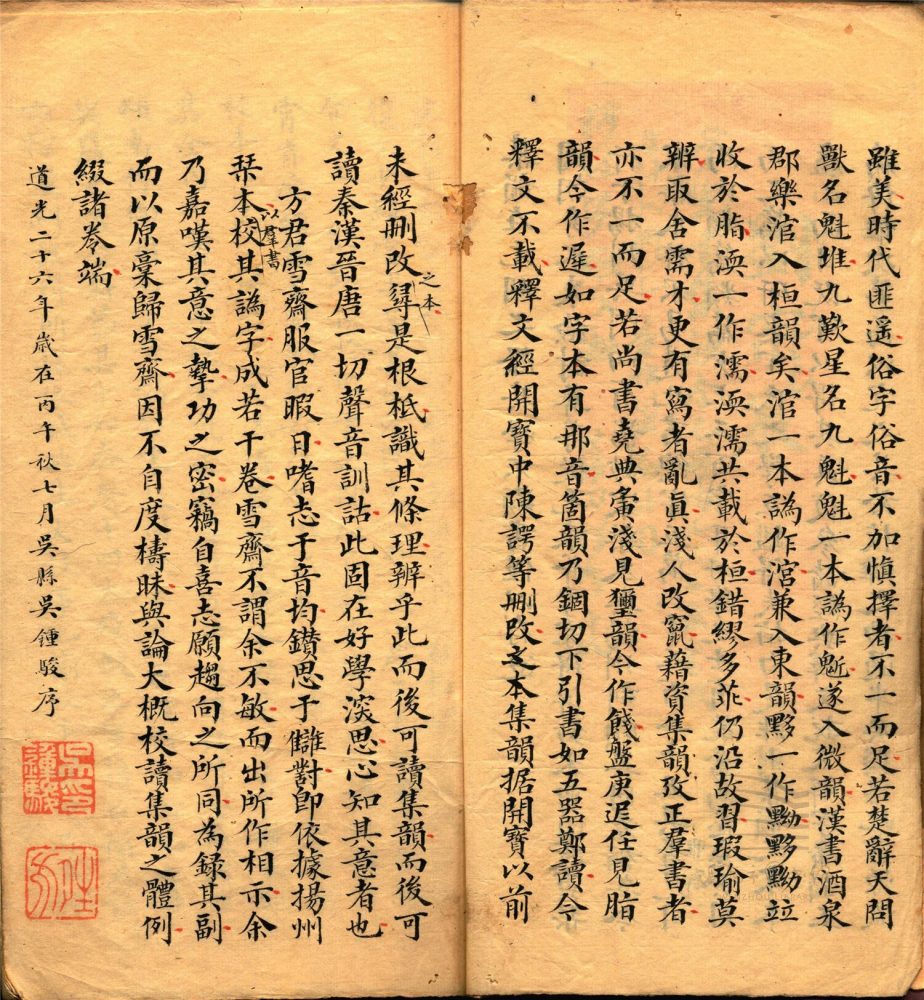 雖美時代匪遥俗字俗音不加愼擇者不一而足若楚辭天問
獸名魁堆九歎星名九魁魁一本譌作鬿遂入微韻漢書酒泉
郡樂涫入桓韻矣涫一本譌作涫兼入東韻黟一作黝黟黝竝
收於脂渜一作濡渜濡共載於桓錯繆多茈仍沿故習瑕瑜莫
辨取舍需才更有寫者亂眞淺人改竄藉資集韻攷正羣書者
亦不一而足若尚書堯典夤淺見玊韻今作餞盤庚迟任見脂
韻今作遲如字本有那音箇韻乃錮切下引書如五器鄭讀今
釋文不載釋文經開寶中陳諤等刪改之本集韻据開寶以前
未經刪改之本尋是根柢識其條理辨乎此而後可讀集韻而後可
讀秦漢晉唐一切聲音訓詁此固在好學湥思心知其意者也
方君雪齋服官暇日嗜志于音均鑽思于讎對卽依據揚州
栞本校以羣書其譌字成若干卷雪齋不謂余不敏而出所作相示余
乃嘉嘆其意之摯功之密竊自喜志願趨向之所同為録其副
而以原稾歸雪齋因不自度檮昧與論大概校讀集韻之體例
綴諸卷端
道光二十六年歲在丙午秋七月吳縣吳鍾駿序
吳印鍾駿